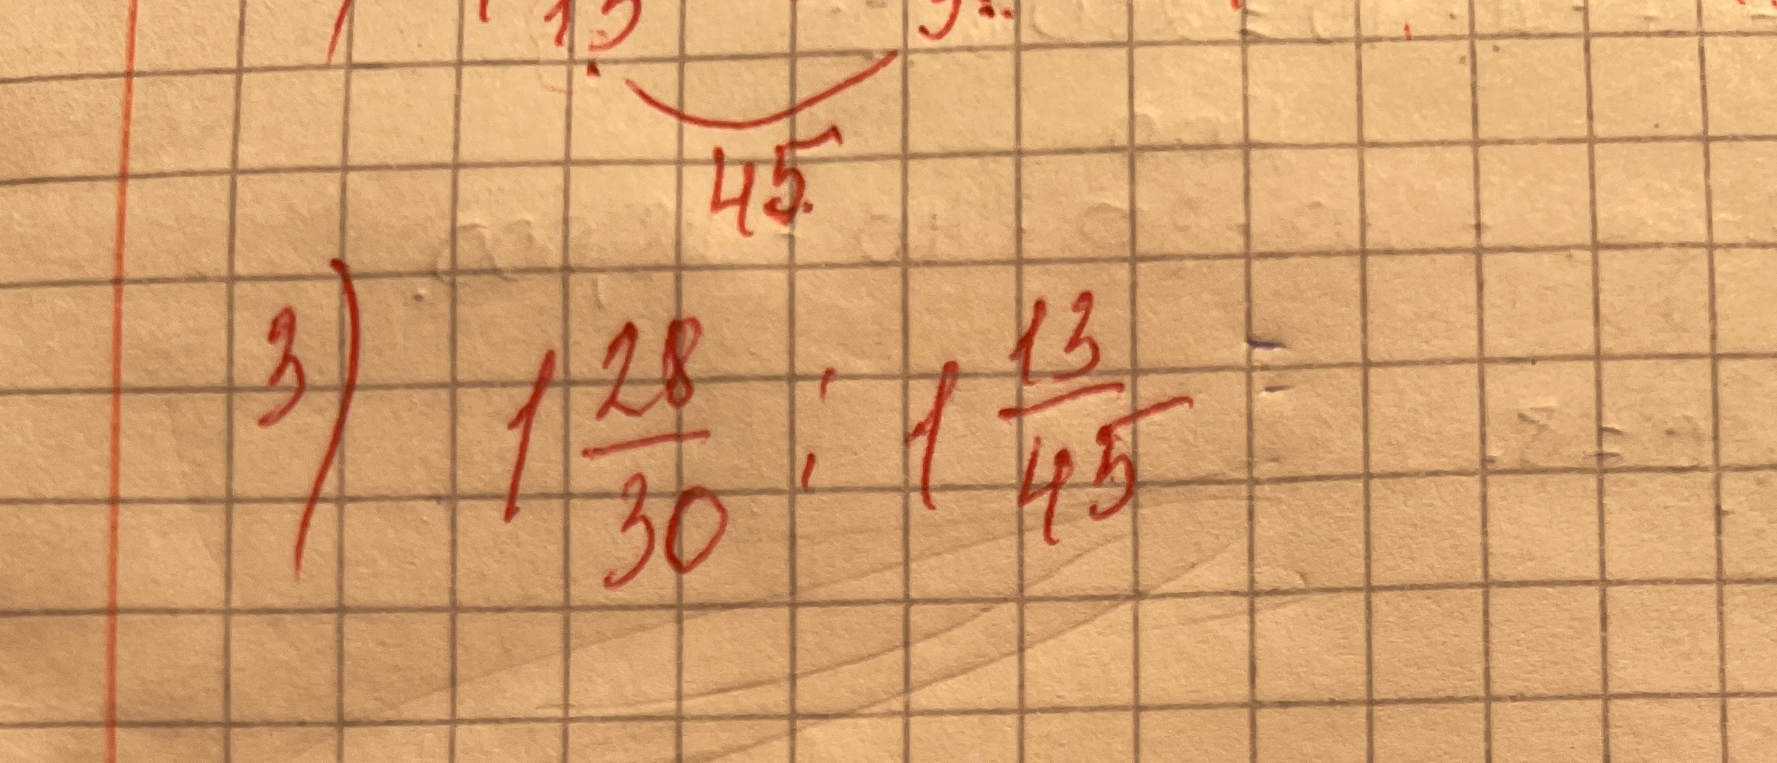 45
3) 1 28/30 : 1 13/45 =